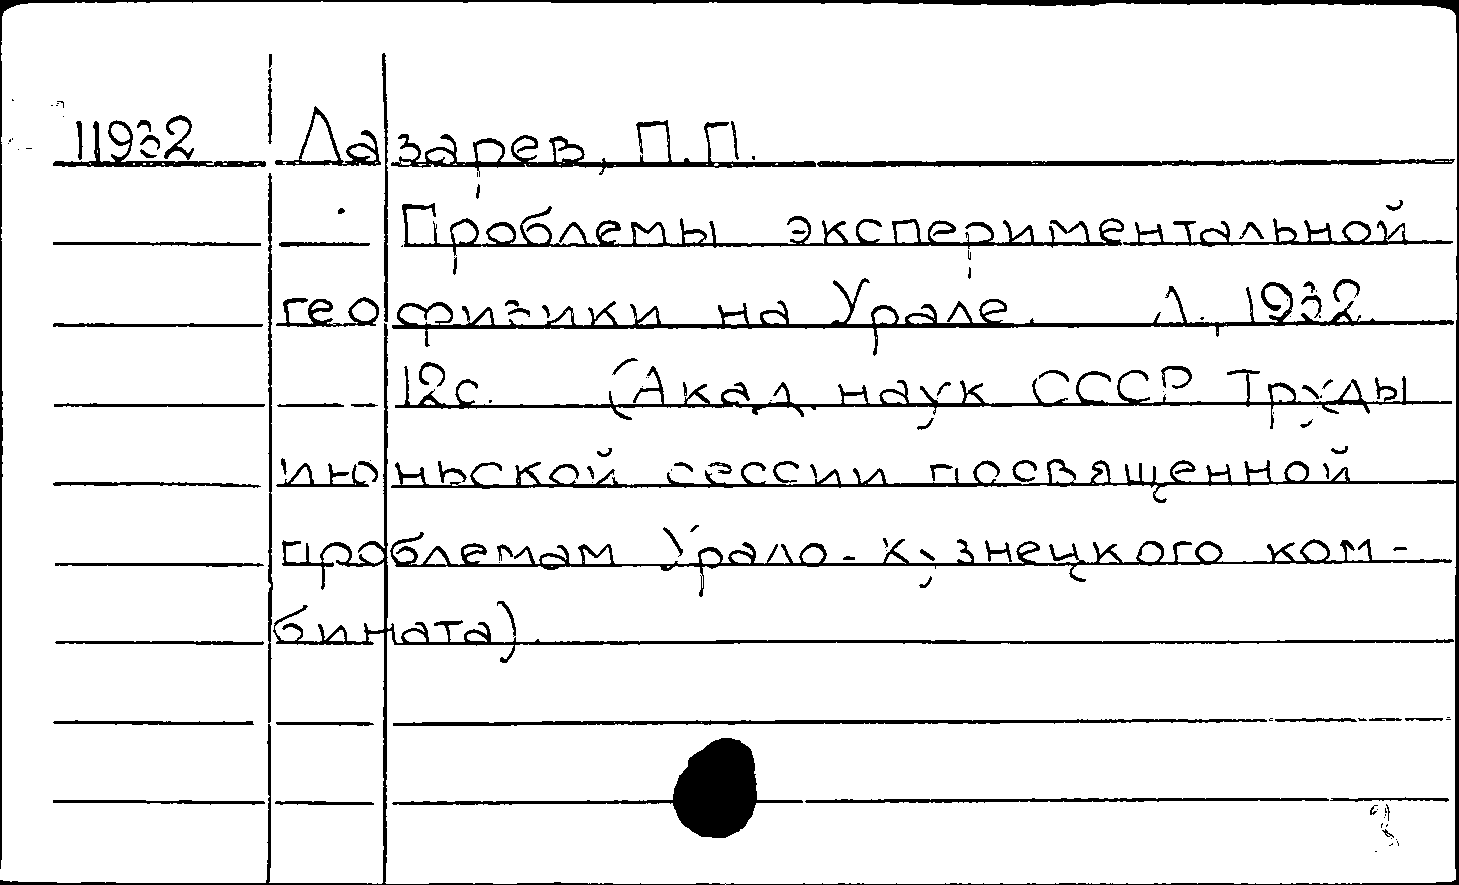 11932 Лазарев, П.П.
Проблемы экспериментальной
геофизики на Урале. Л., 1932.
12с. (Акад. наук СССР Труды
июньской сессии посвященной
проблемам Урало-Кузнецкого ком-
бината).